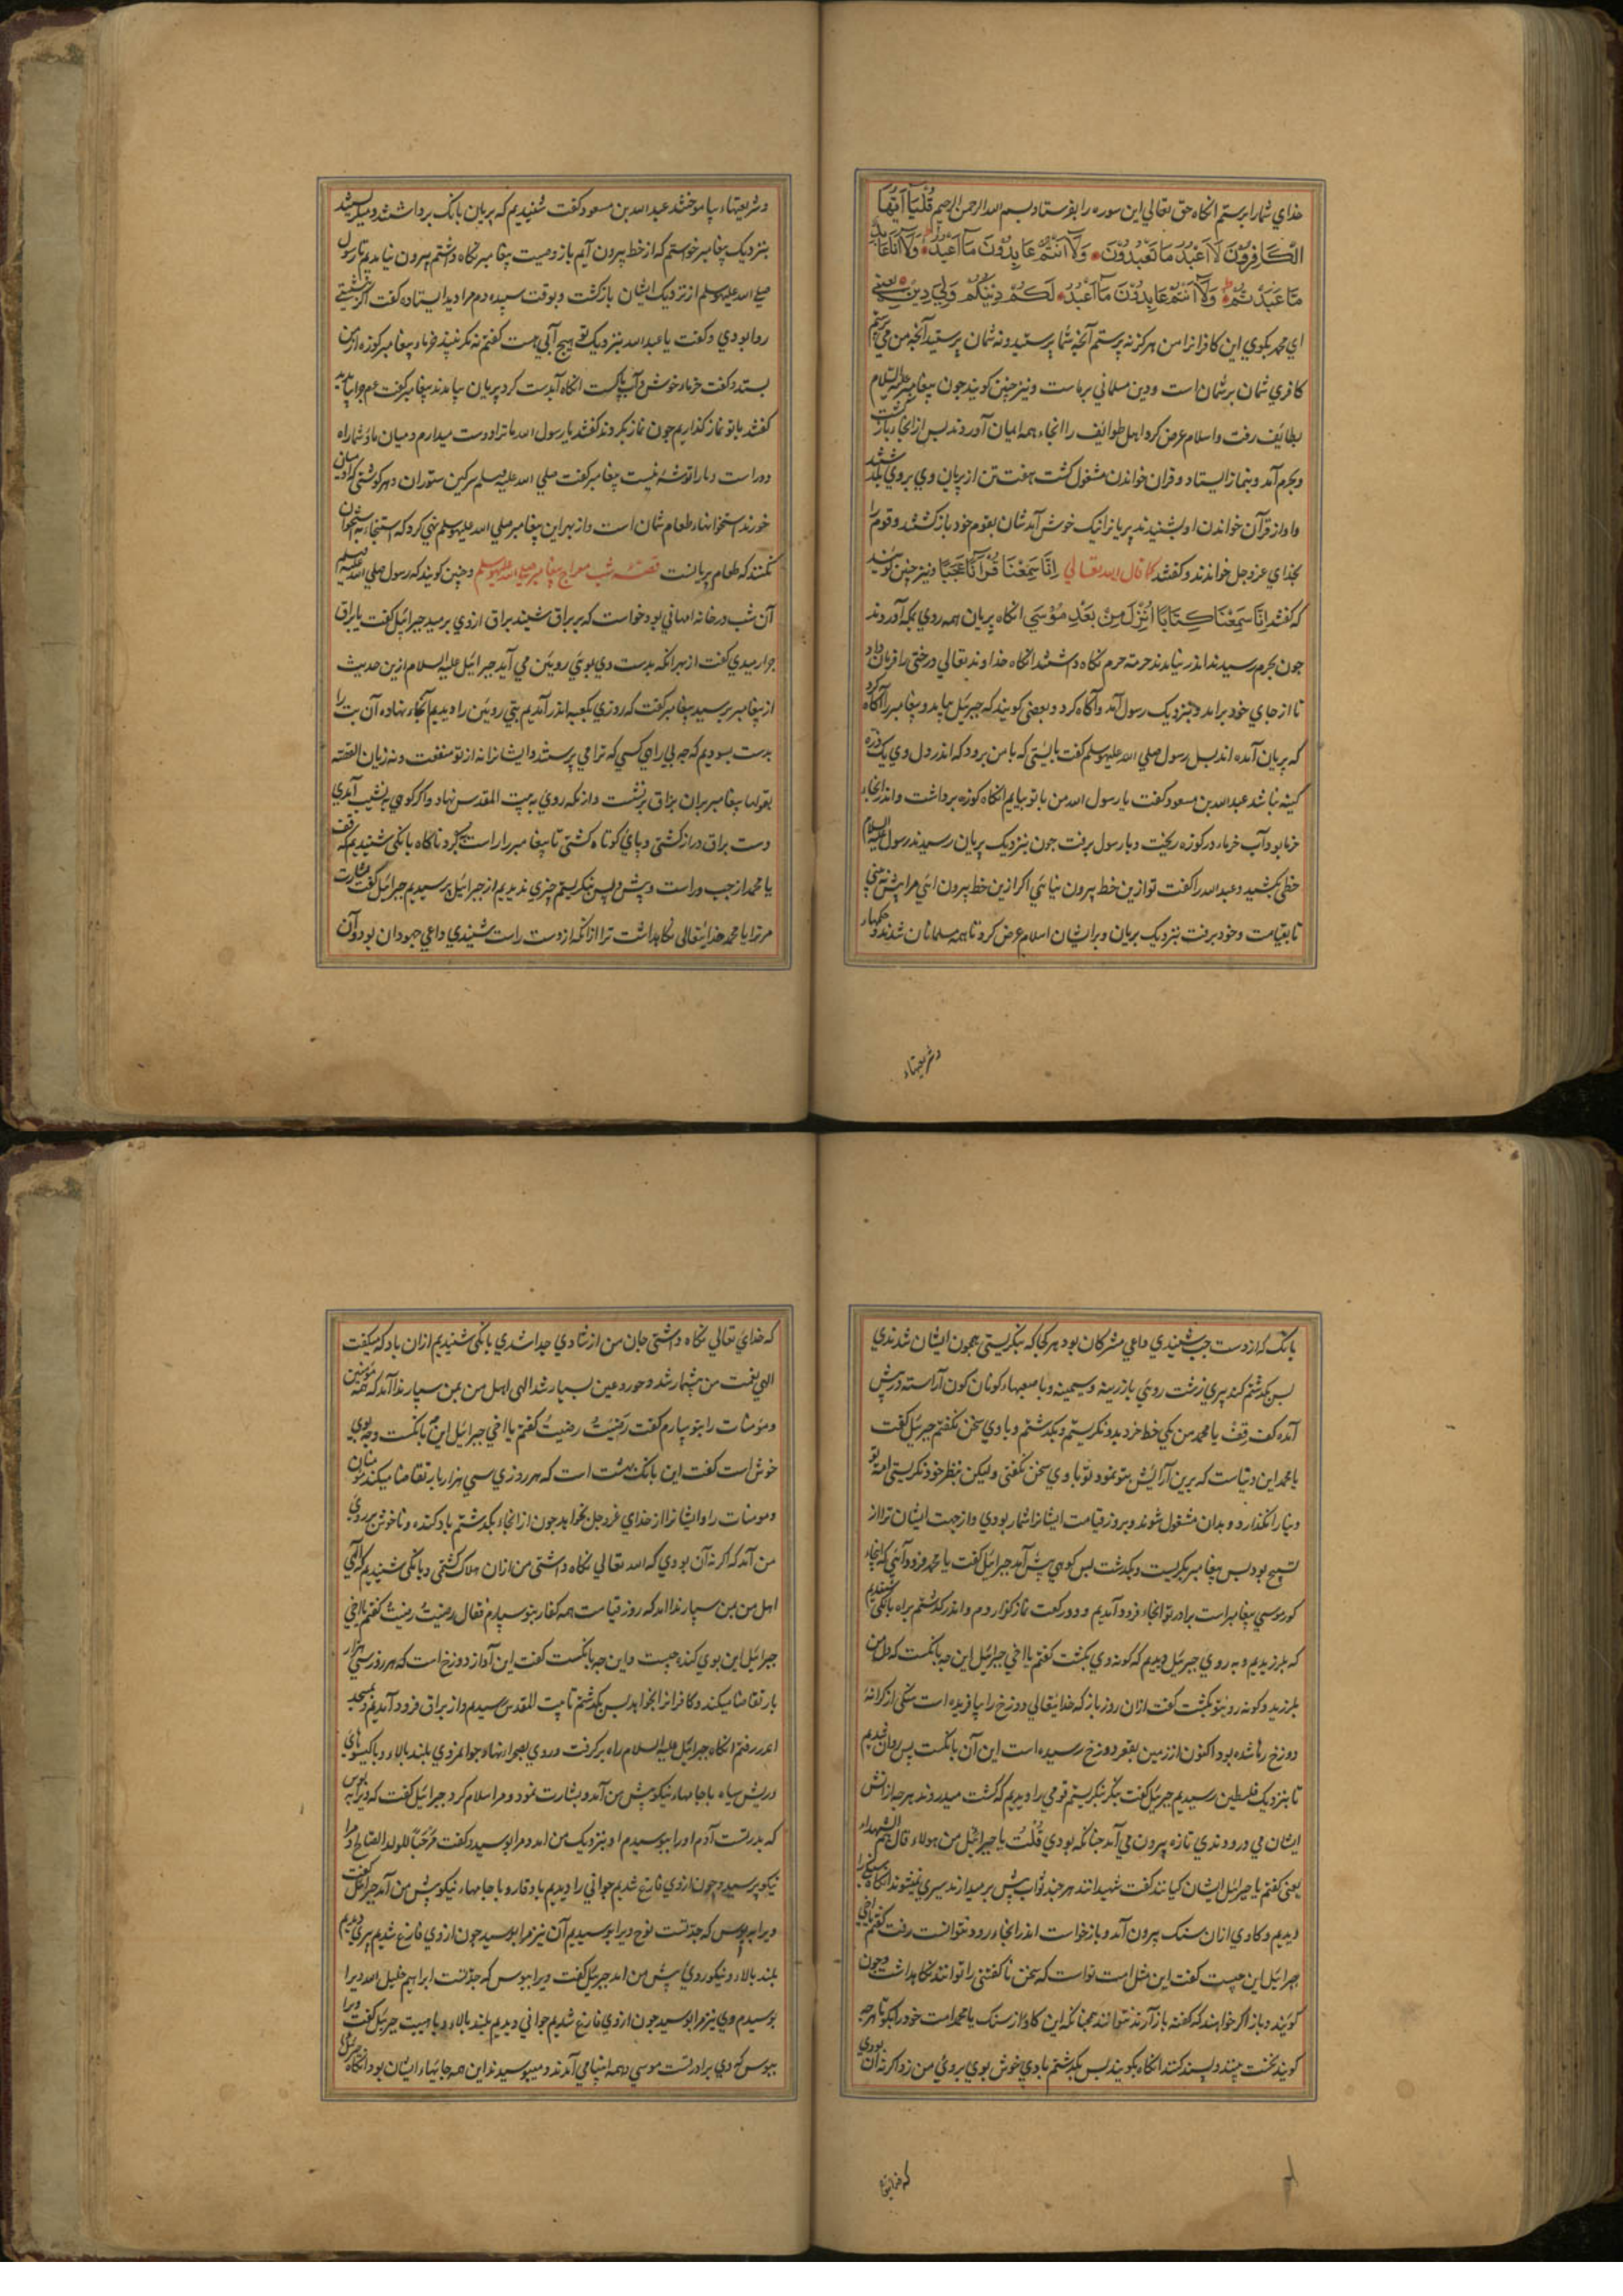 خدای شمارا برستم انکاه حق تعالی این سوره را بفرستاد بسم الله الرحمن الرحیم قُلْ یَا اَیُّهَا
الْکَافِرُوْنَ لَا اَعْبُدُ مَا تَعْبُدُوْنَ وَلَا اَنْتُمْ عَابِدُوْنَ مَا اَعْبُدُ وَلَا اَنَا عَابِدٌ
مَا عَبَدْتُمْ وَلَا اَنْتُمْ عَابِدُوْنَ مَا اَعْبُدُ لَکُمْ دِیْنُکُمْ وَلِيَ دِیْنِ یعنی
ای محمد بکوی این کافرانرا من هرکز نه پرستم آنچه شما پرستید ونه شمان پرستید آنچه من می پرستم
کافری شمان بر شمان است ودین مسلمانی بر ماست ونیز چنین کویند جون پیغامبر علیه السلام
بطائیف رفت واسلام عرض کرد اهل طوائیف را انجاء همه ایمان آوردند پس از انجاء بازکشت
وبحرم آمد وبنماز ایستاد وقران خواندن مشغول کشت هفت تن از پریان وی بروی بکذشتند
واواز قرآن خواندن او بشنیدند پریانرا نیک خوش آمد شان بقوم خود بازکشتند وقوم را
بخدای عزوجل خواندند وکفتند کما قال الله تعالی اِنَّا سَمِعْنَا قُرْآنًا عَجَبًا ونیز چنین کویند
که کفتند اِنَّا سَمِعْنَا کِتَابًا اُنْزِلَ مِنْ بَعْدِ مُوْسَی انکاه پریان همه روی بمکه آوردند
جون بحرم رسیدند اندر نیامدند حرمة حرم نکاه داشتند انکاه خداوند تعالی درختی را فرمان داد
تا از جای خود برامد وبنزدیک رسول آمد وآکاه کرد وبعضی کویند که جبرئیل بیامد وپیغامبر را آکاه کرد
که پریان آمده اند پس رسول صلی الله علیه وسلم کفت بایستی که با من برود که اندر دل وی یک ذره
کینه نباشد عبدالله بن مسعود کفت یا رسول الله من با تو بیایم انکاه کوزه برداشت واندر انجاء
خرما بود آب خرماء در کوزه ریخت وبا رسول برفت جون بنزدیک پریان رسیدند رسول علیه السلام
خطی بکشید وعبدالله را کفت تو ازین خط بیرون نیائی اکر ازین خط بیرون ائی مرا بیش نه بینی
تا بقیامت وخود برفت بنزدیک پریان وبرایشان اسلام عرض کرد تا همه مسلمانان شدند وحکمهاء
وشریعتهاء
وشریعتهاء بیاموختند عبدالله بن مسعود کفت شنیدیم که پریان بانک برداشتند ومیکریستند
بنزدیک پیغامبر خواستم که از خط بیرون آیم باز وصیت پیغامبر نکاه داشتم بیرون نیامدیم تا رسول
صلی الله علیه وسلم از نزدیک ایشان بازکشت وبوقت سپیده دم مرا دید ایستاده کفت اکر بنشستی
روا بودی وکفت یا عبدالله بنزدیک تو هیچ آبی هست کفتم نه مکر نبیذ خرماء پیغامبر کوزه از من
بستد وکفت خرماء خوش وآب پاکست انکاه آبدست کرد پریان بیامدند پیغامبر کفت عم چرا بیامدید
کفتند با تو نماز کذاریم جون نماز بکردند کفتند یا رسول الله ما ترا دوست میداریم ومیان ما وشما راه
دور است ومارا توشه نیست پیغامبر کفت صلی الله علیه وسلم سرکین ستوران وهر کوشتی که ادمیان
خورند استخوانهاء طعام شمان است واز بهر این پیغامبر صلی الله علیه وسلم نهی کرد که استنجاء به استخوان
نکنند که طعام پریانست قصّهٔ شب معراج پیغامبر صلی الله علیه وسلم وچنین کویند که رسول صلی الله علیه وسلم
آن شب در خانه امهانی بود خواست که بر براق نشیند براق ازوی برمید جبرائیل کفت یا براق
چرا رمیدی کفت از بهر انکه بدست وی بوئی روئین می آید جبرائیل علیه السلام ازین حدیث
از پیغامبر برسید پیغامبر کفت که روزی بکعبه اندر آمدیم بتی روئین را دیدیم آنجاء نهاده آن بت را
بدست بسودیم که چه بی راهی کسی که ترا می پرستد وایشانرا نه از تو منفعت ونه زیان القصّه
پیغامبر بران براق برنشست واز مکه روی به بیت المقدس نهاد واکر کوهی به نشیب آمدی
دست براق دراز کشتی وپائی کوتاه کشتی تا پیغامبر را راست بکرد ناکاه بانکی شنیدیم که قف
یا محمد از چپ وراست وپیش وپس نکریستم چیزی ندیدیم از جبرائیل پرسیدیم جبرائیل کفت بشارت
مر ترا یا محمد خدایتعالی نکاهداشت ترا ازانکه از دست راست شنیدی داعی جهودان بود وآن
بانک که از دست چپ شنیدی داعی مشرکان بود هرکجا که بنکریستی همچون ایشان شدندی
پس بکذشتم کنده پیری زشت روئی با زرینه وسیمینه وبا صبعهاء کونان کون آراسته در پیش
آمد کفت قِفْ یا محمد من بیکی خط خرد بدو نکریستم وبکذشتم وبا وی سخن نکفتم جبرئیل کفت
یا محمد این دنیاست که برین آرایش بتو نمود وتو با وی سخن نکفتی ولیکن بنظر خود نکریستی امة تو
دنیا را نکذارد وبدان مشغول شوند وبروز قیامت ایشانرا شمار بودی واز جهت ایشان ترا از
پس پیغامبر بکریست وبکذشت پس کوهی پیش آمد جبرائیل کفت یا محمد فرود آئی که اینجاء
کور موسی پیغامبر است برادر تو انجاء فرود آمدیم ودو رکعت نماز کزاردم واندر کذشتم براه بانکی شنیدیم
که بلرزیدیم وبه روی جبرئیل دیدیم که کونه وی بکشت کفتم یا اخی جبرائیل این چه بانکست که دل من
بلرزید وکونه روئی تو بکشت کفت ازان روز باز که خدایتعالی دوزخ را بیافریده است سنکی از کرانهٔ
دوزخ رها شده بود اکنون از زمین بقعر دوزخ رسیده است این آن بانکست پس روان شدیم
تا بنزدیک فلسطین رسیدیم جبرئیل کفت بنکر بنکریستم قومی را دیدیم که کشت میدروند هر چه از پس
ایشان می درودندی تازه بیرون می آمد چنانکه بودی قُلْتُ یا جبرائیل من هولاء قال هم الشهداء
یعنی کفتم یا جبرائیل ایشان کیانند کفت شهیدانند هر چند ثواب پیش بر میدارند سیری نمیشوند انکاه سنکی را
دیدیم وکاوی ازان سنک بیرون آمد وباز خواست اندر انجاء رود نتوانست رفت کفتم یا اخی
جبرائیل این چیست کفت این مثل امت تواست که سخن ناکفتنی را نتوانند نکاهداشت وچون
کویند وباز اکر خواهند که کفته باز آرند نتوانند همچنانکه این کاو از سنک یا محمد امت خود را بکو تا هر چه
کویند نخست بینند وپسند کنند انکاه بکویند پس بکذشتم بادی خوش بوی بروئی من زد اکر نه ان بودی
که خدایتعالی
که خدای تعالی نکاه داشتی جان من از شادی جدا شدی بانکی شنیدیم ازان باد که میکفت
الهی نعمت من بیشمار شد وحور وعین بسیار شد الهی اهل من بمن سپار ندا آمد که همه مؤمنین
ومؤمنات را بتو سپارم کفت رَضِیْتُ رضیتُ کفتم یا اخی جبرائیل این چه بانکست وچه بوی
خوش است کفت این بانک بهشت است که هر روزی سی هزار بار تقاضا میکند مومنان
ومومنات را وایشانرا از خدای عزوجل بخواهد جون از انجاء بکذشتم باد کنده وناخوش بر روی
من آمد که اکر نه آن بودی که الله تعالی نکاه داشتی من ازان هلاک کشتمی وبانکی شنیدیم که الهی
اهل من بمن سپار ندا امد که روز قیامت همه کفار بتو سپارم فقال رضیتُ رضیتُ کفتم یا اخی
جبرائیل این بوی کنده چیست واین چه بانکست کفت این آواز دوزخ است که هر روز سی هزار
بار تقاضا میکند وکافرانرا بخواهد پس بکذشتم تا بیت المقدس رسیدیم واز براق فرود آمدیم وبمسجد
اندر رفتم انکاه جبرائیل علیه السلام راه برکرفت وروی بصحرا نهاد جوانمردی بلند بالاء وبا کیسوهای
وریش سیاه با جامهاء نیکو پیش من آمد وبشارت نمود ومرا سلام کرد جبرائیل کفت که ویرا ببوس
که پدر تست آدم اورا ببوسیدم او بنزدیک من امد ومرا بوسید وکفت مَرْحَبًا للولد الصالح ومرا
نیکو پرسید وچون ازوی فارغ شدیم جوانی را دیدیم با وقار وبا جامهاء نیکو پیش من آمد جبرائیل کفت
ویرا ببوس که جدّتست نوح ویرا بوسیدیم آن نیز مرا بوسید چون ازوی فارغ شدیم پیری دیدیم
بلند بالاء ونیکو روئی پیش من امد جبرئیل کفت ویرا ببوس که جدّتست ابراهیم خلیل الله ویرا
بوسیدم وی نیز مرا بوسید چون ازوی فارغ شدیم جوانی دیدیم بلند بالاء وبا هیبت جبرئیل کفت ویرا
ببوس که وی برادر تست موسی وهمه انبیا می آمدند ومیبوسیدند این همه جانهاء ایشان بود انکاه